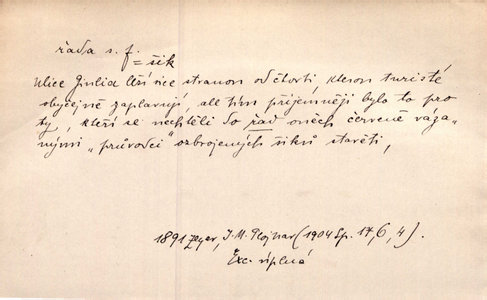 řada s. f.
= šik
Ulice Giulia leží více stranou od čtvrti, kterou turisté
obyčejně zaplavují, ale tím příjemněji bylo to pro
ty, kteří se nechtěli do řad oněch červeně váza-
nými „průvodci" ozbrojených šiků stavěti,
1891 Zeyer, J. M. Plojhar (1904 Sp. 17, 6, 4).
Exc. úplná